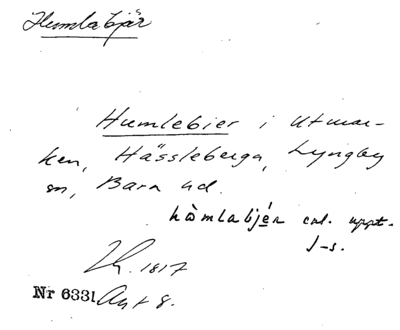 Humlabjär
Humlebier i Utmar-
ken, Hässleberga, Lyngby
sn, Bara hd.
hòmlabjér enl. uppt.
J-s.
1817
Nr 6331 Akt 8.